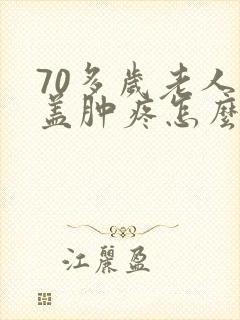 70多歲老人
蓋肿疼怎麽
江麗盈